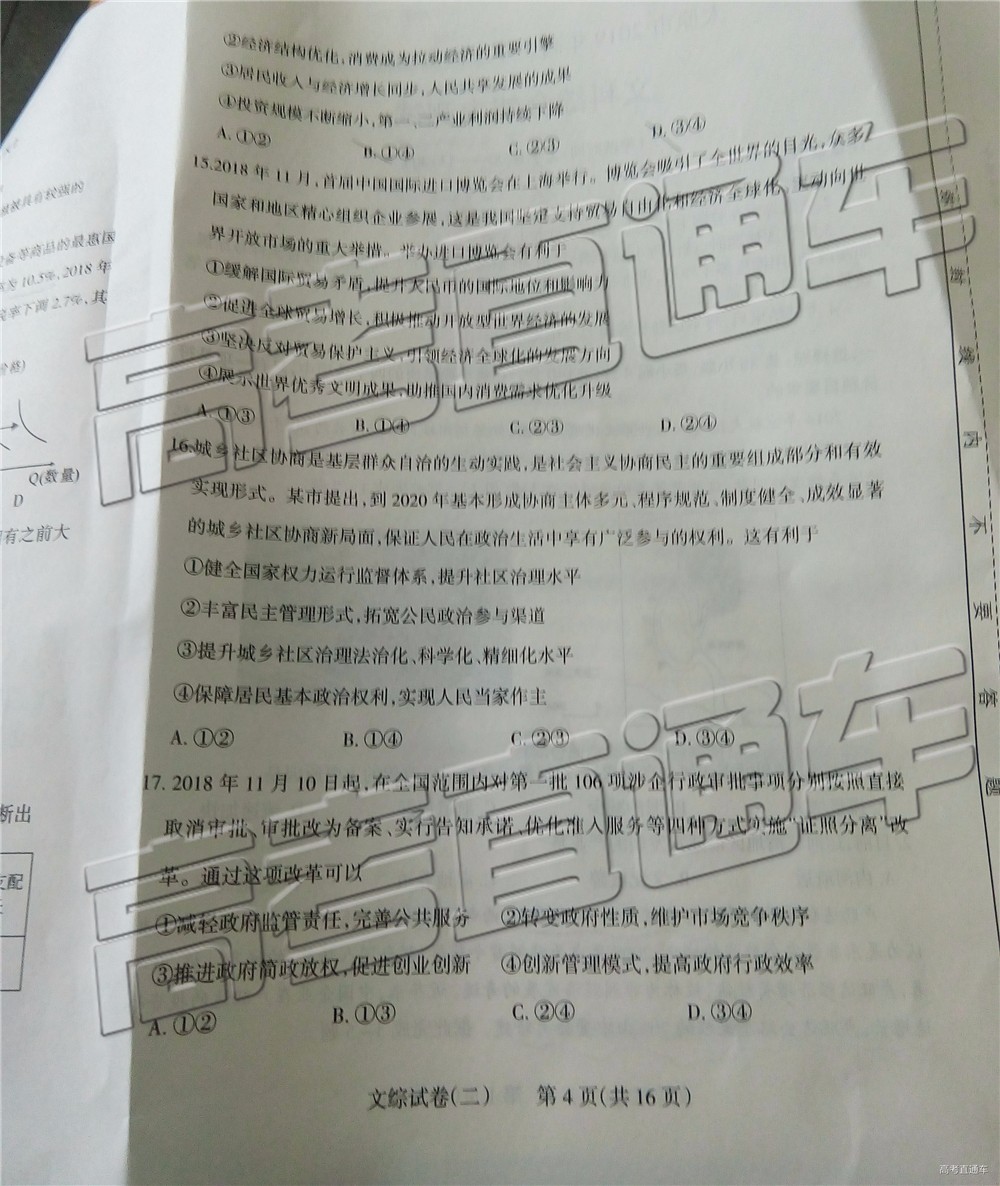 ②经济结构优化,消费成为拉动经济的重要引擎
③居民收入与经济增长同步,人民共享发展的成果
④投资规模不断缩小,第一、二产业利润持续下降
A. ①② B. ①④ C. ②③ D. ③④
15.2018年11月,首届中国国际进口博览会在上海举行。博览会吸引了全世界的目光,众多
国家和地区精心组织企业参展,这是我国坚定支持贸易自由化和经济全球化、主动向世
界开放市场的重大举措。举办进口博览会有利于
①缓解国际贸易矛盾,提升人民币的国际地位和影响力
②促进全球贸易增长,积极推动开放型世界经济的发展
③坚决反对贸易保护主义,引领经济全球化的发展方向
④展示世界优秀文明成果,助推国内消费需求优化升级
A. ①③ B. ①④ C. ②③ D. ②④
16.城乡社区协商是基层群众自治的生动实践,是社会主义协商民主的重要组成部分和有效
实现形式。某市提出,到2020年基本形成协商主体多元、程序规范、制度健全、成效显著
的城乡社区协商新局面,保证人民在政治生活中享有广泛参与的权利。这有利于
①健全国家权力运行监督体系,提升社区治理水平
②丰富民主管理形式,拓宽公民政治参与渠道
③提升城乡社区治理法治化、科学化、精细化水平
④保障居民基本政治权利,实现人民当家作主
A. ①② B. ①④ C. ②③ D. ③④
17. 2018年11月10日起,在全国范围内对第一批106项涉企行政审批事项分别按照直接
取消审批、审批改为备案、实行告知承诺、优化准入服务等四种方式实施“证照分离”改
革。通过这项改革可以
①减轻政府监管责任,完善公共服务 ②转变政府性质,维护市场竞争秩序
③推进政府简政放权,促进创业创新 ④创新管理模式,提高政府行政效率
A. ①② B. ①③ C. ②④ D. ③④
文综试卷(二) 第4页(共16页)
具有较强的
备等商品的最惠国
为10.5%,2018年
税率下调2.7%,其
Q(数量)
D
有之前大
断出
支配
密
封
线
内
不
要
答
题
高考直通车
高考直通车
高考直通车